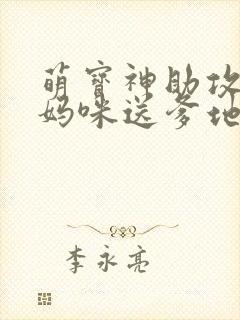 萌宝神助攻
妈咪送爹地
李永亮